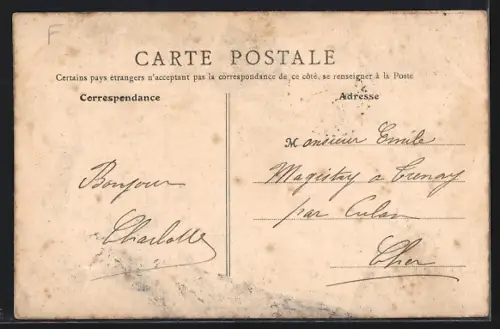 F
CARTE POSTALE
Certains pays étrangers n'acceptant pas la correspondance de ce côté, se renseigner à la Poste
Correspondance
Adresse
Monsieur Emile
Magestay a
par Culan
Cher
Bonjour
Charlotte